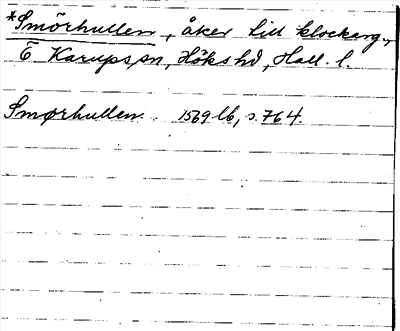 *Smörhullen, åker till klockarg.,
Ö Karups sn, Höks hd, Hall. l.
Smørhullen. 1569 lb, s. 764.